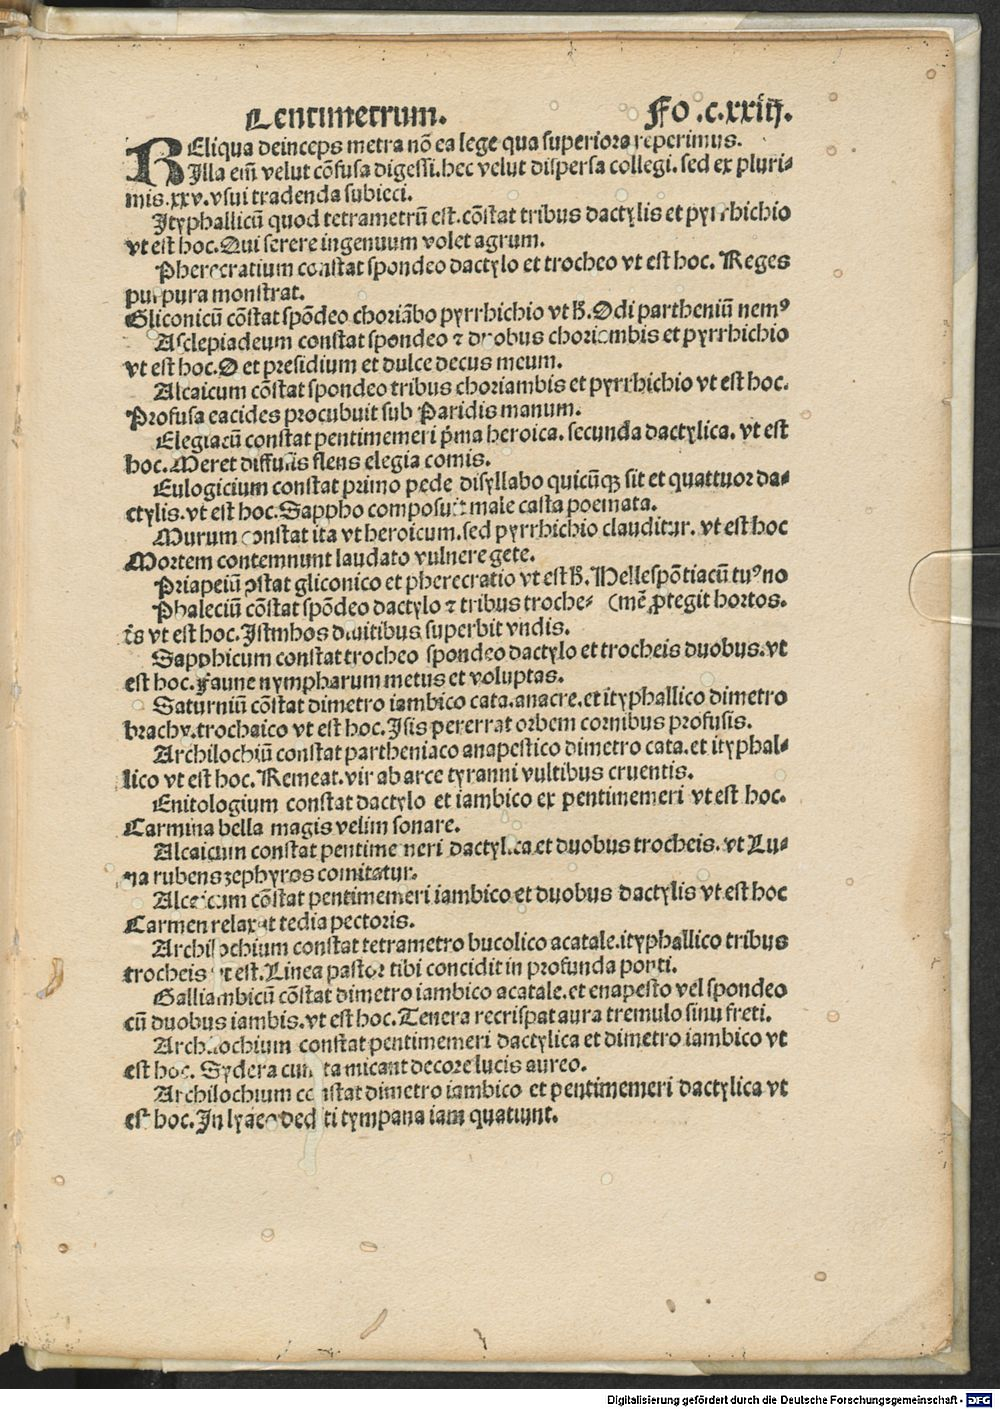 Centimetrum. Fo .c.xxiij.
REliqua deinceps metra nō ea lege qua superiora reperimus.
Illa em̄ velut cōfusa digessi. hec velut dispersa collegi. sed ex pluri⸗
mis .xxv. vsui tradenda subieci.
Ityphallicū quod tetrametrū est. cōstat tribus dactylis et pyrrhichio
vt est hoc. Qui serere ingenuum volet agrum.
Pherecratium constat spondeo dactylo et trocheo vt est hoc. Reges
purpura monstrat.
Gliconicū cōstat spōdeo choriābo pyrrhichio vt h̄. Odi partheniū nemꝰ
Asclepiadeum constat spondeo ⁊ duobus choriambis et pyrrhichio
vt est hoc. O et presidium et dulce decus meum.
Alcaicum cōstat spondeo tribus choriambis et pyrrhichio vt est hoc.
Profusa eacides procubuit sub Paridis manum.
Elegiacū constat pentimemeri p̄ma heroica. secunda dactylica. vt est
hoc. Meret diffusis flens elegia comis.
Eulogicium constat primo pede disyllabo quicūqꝫ sit et quattuor da⸗
ctylis. vt est hoc. Sappho composuit male casta poemata.
Murum constat ita vt heroicum. sed pyrrhichio clauditur. vt est hoc
Mortem contemnunt laudato vulnere gete.
Priapeiū ꝯstat gliconico et pherecratio vt est h̄. Hellespōtiacū tuꝰ no
Phaleciū cōstat spōdeo dactylo ⁊ tribus troche⸗ (mē ꝓtegit hortos.
is vt est hoc. Isthmhos diuitibus superbit vndis.
Sapphicum constat trocheo spondeo dactylo et trocheis duobus. vt
est hoc. Faune nympharum metus et voluptas.
Saturniū cōstat dimetro iambico cata. anacre. et ityphallico dimetro
brachy. trochaico vt est hoc. Isis pererrat orbem cornibus profusis.
Archilochiū constat partheniaco anapestico dimetro cata. et ityphal⸗
lico vt est hoc. Remeat. vir ab arce tyranni vultibus cruentis.
Enitologium constat dactylo et iambico ex pentimemeri vt est hoc.
Carmina bella magis velim sonare.
Alcaicum constat pentimemeri dactylica et duobus trocheis. vt Lu⸗
na rubens zephyros comitatur.
Alcaicum cōstat pentimemeri iambico et duobus dactylis vt est hoc
Carmen relaxat tedia pectoris.
Archilochium constat tetrametro bucolico acatale. ityphallico tribus
trocheis vt est. Linea pastor tibi concidit in profunda ponti.
Galliambicū cōstat dimetro iambico acatale. et enapesto vel spondeo
cū duobus iambis. vt est hoc. Tenera recrispat aura tremulo sinu freti.
Archilochium constat pentimemeri dactylica et dimetro iambico vt
est hoc. Sydera cuncta micant decore lucis aureo.
Archilochium constat dimetro iambico et pentimemeri dactylica vt
est hoc. In lyaeo dediti tympana iam quatiunt.
Digitalisierung gefördert durch die Deutsche Forschungsgemeinschaft - DFG